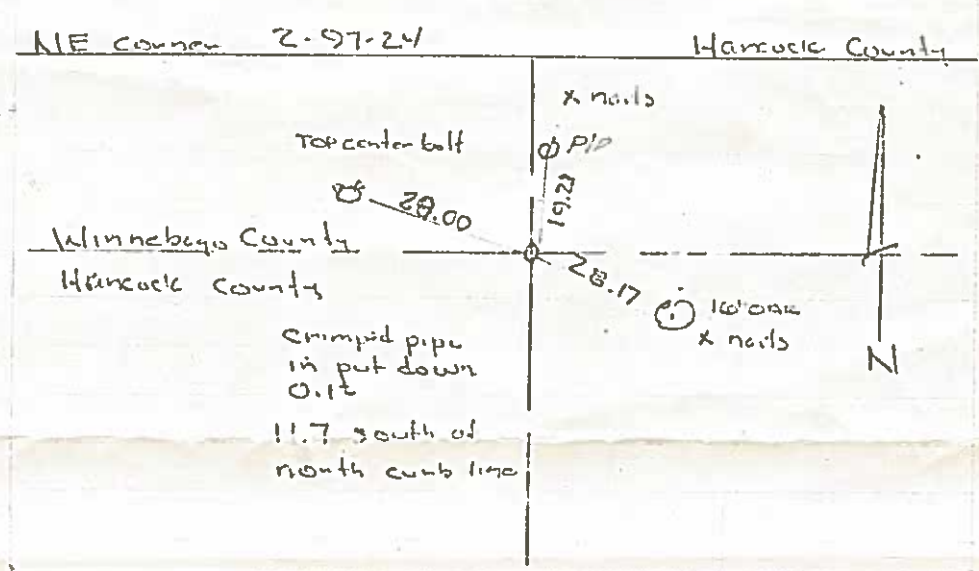 NE Corner 2-97-24
Hancock County
x nails
Top center bolt
P/P
28.00
19.23
Winnebago County
Hancock County
28.17
16" OAK
x nails
N
Crimpid pipe
in put down
0.12
11.7 south of
north curb line